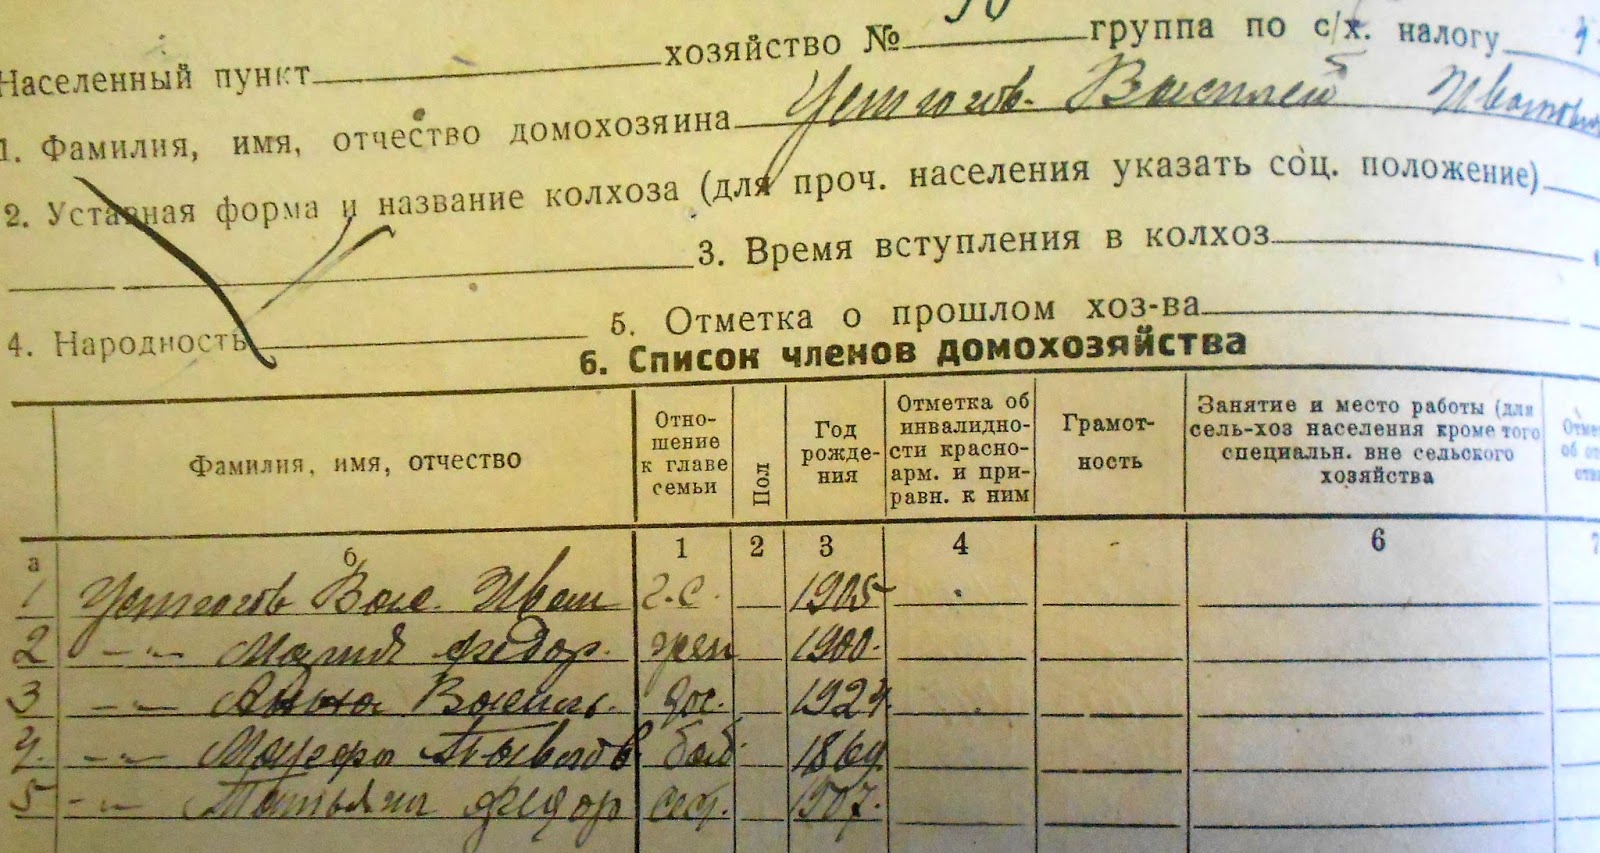 Населенный пункт хозяйство № группа по с/х. налогу
1. Фамилия, имя, отчество домохозяина Устюгов Василей Иванович
2. Уставная форма и название колхоза (для проч. населения указать соц. положение)
3. Время вступления в колхоз
4. Народность 5. Отметка о прошлом хоз-ва
6. Список членов домохозяйства
Фамилия, имя, отчество
Отно-
шение
к главе
семьи
Пол
Год
рожде-
ния
Отметка об
инвалидно-
сти красно-
арм. и при-
равн. к ним
Грамот-
ность
Занятие и место работы (для
сель-хоз населения кроме того
специальн. вне сельского
хозяйства
а б 1 2 3 4 - 6 7
1 Устюгов Вас. Иван г.с. 1905
2 -"- Мария Федор. жен 1900.
3 -"- Анна Василь. доч. 1924.
4. -"- 1869.
5 -"- Татьяна Федор сест. 1907.